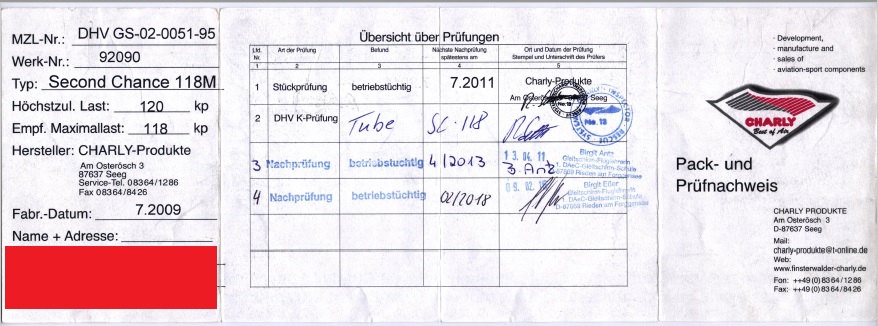 MZL-Nr.: DHV GS-02-0051-95
Werk-Nr.: 92090
Typ: Second Chance 118M
Höchstzul. Last: 120 kp
Empf. Maximallast: 118 kp
Hersteller: CHARLY-Produkte
Am Osterösch 3
87637 Seeg
Service-Tel. 08364/1286
Fax 08364/8426
Fabr.-Datum: 7.2009
Name + Adresse:
Übersicht über Prüfungen
Lfd. Nr. Art der Prüfung Befund Nächste Nachprüfung spätestens am Ort und Datum der Prüfung Stempel und Unterschrift des Prüfers
1 2 3 4 5
1 Stückprüfung betriebstüchtig 7.2011 Charly-Produkte
Am Osterösch Seeg
2 DHV K-Prüfung Tube SC-118
3 Nachprüfung betriebstüchtig 4/2013 13. 04. 11 Birgit Antz
Gleitschirm-Flugzentrum
1. DAeC-Gleitschirm-Schule
87669 Rieden am Forggensee
4 Nachprüfung betriebstüchtig 02/2018 09. 02. Birgit Eßer
Gleitschirm-Flugzentrum
1. DAeC-Gleitschirm-Schule
D-87669 Rieden am Forggensee
· Development,
manufacture and
· sales of
· aviation-sport components
CHARLY
Best of Air
Pack- und
Prüfnachweis
CHARLY PRODUKTE
Am Osterösch 3
D-87637 Seeg
Mail:
charly-produkte@t-online.de
Web:
www.finsterwalder-charly.de
Fon: ++49(0)8364/1286
Fax: ++49(0)8364/8426